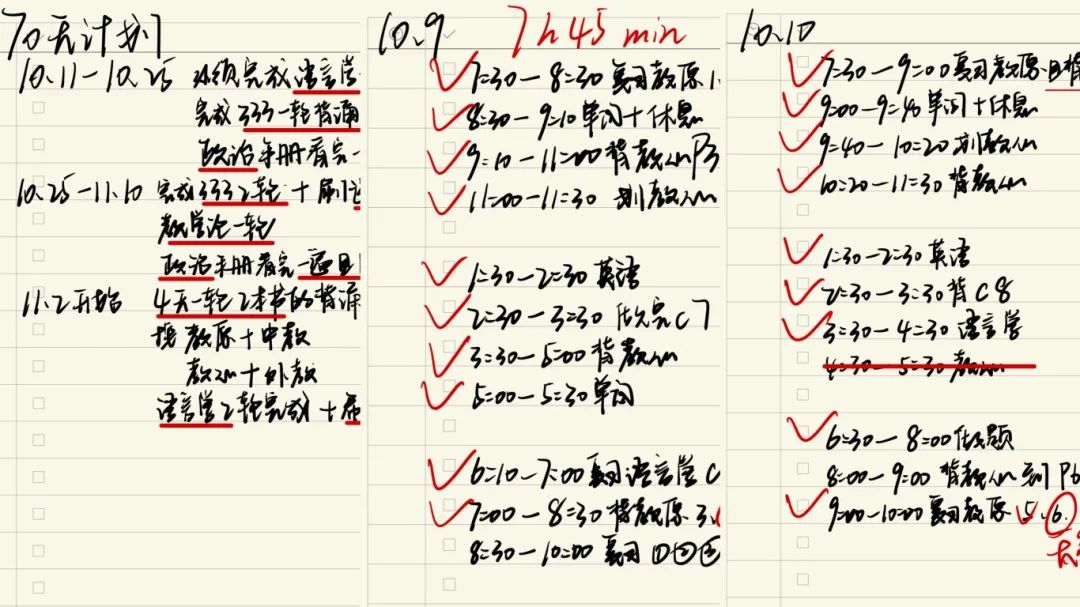 70天计划
10.11—10.25 必须完成语言学
完成333一轮背诵
政治手册看完一
10.25—11.10 完成333 2轮+刷
教学论一轮
政治手册看完一遍且
11.2开始 4天一轮2本书的背诵
教原+中教
教心+外教
语言学2轮完成+
10.9 7h45min
7:30—8:30 复习教原1.
8:30—9:10 单词+休息
9:10—11:00 背教心P3
11:00—11:30 划教心
1:30—2:30 英语
2:30—3:30 做完C7
3:30—5:00 背教心
5:00—5:30 单词
6:10—7:00 复习语言学C
7:00—8:30 背教原3.
8:30—10:00 复习①②
10.10
7:30—9:00 复习教原且背
9:00—9:40 单词+休息
9:40—10:20 划教心
10:20—11:30 背教心
1:30—2:30 英语
2:30—3:30 背C8
3:30—4:30 语言学
4:30—5:30 教心
6:30—8:00 做题
8:00—9:00 背教心到P6
9:00—10:00 复习教原5、6.